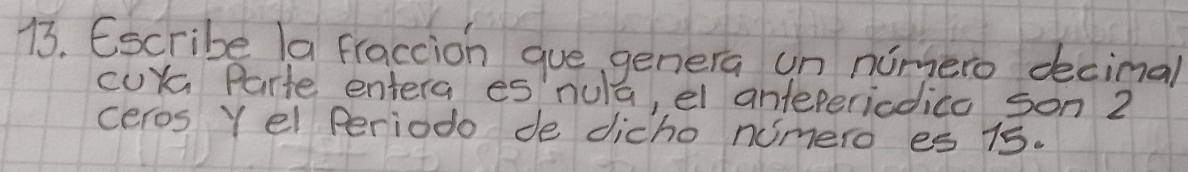 13. Escribe la fracción que genera un número decimal
cuya Parte entera es nula, el anteperiodico son 2
ceros Y el Periodo de dicho número es 15.